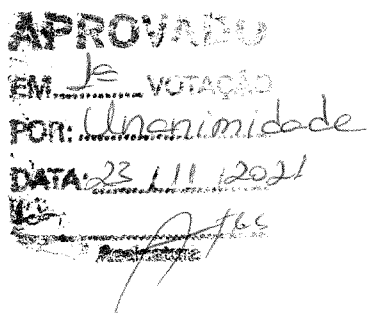 APROVADO
EM 1ª VOTAÇÃO
POR: Unanimidade
DATA: 23 / 11 / 2021
Assinatura